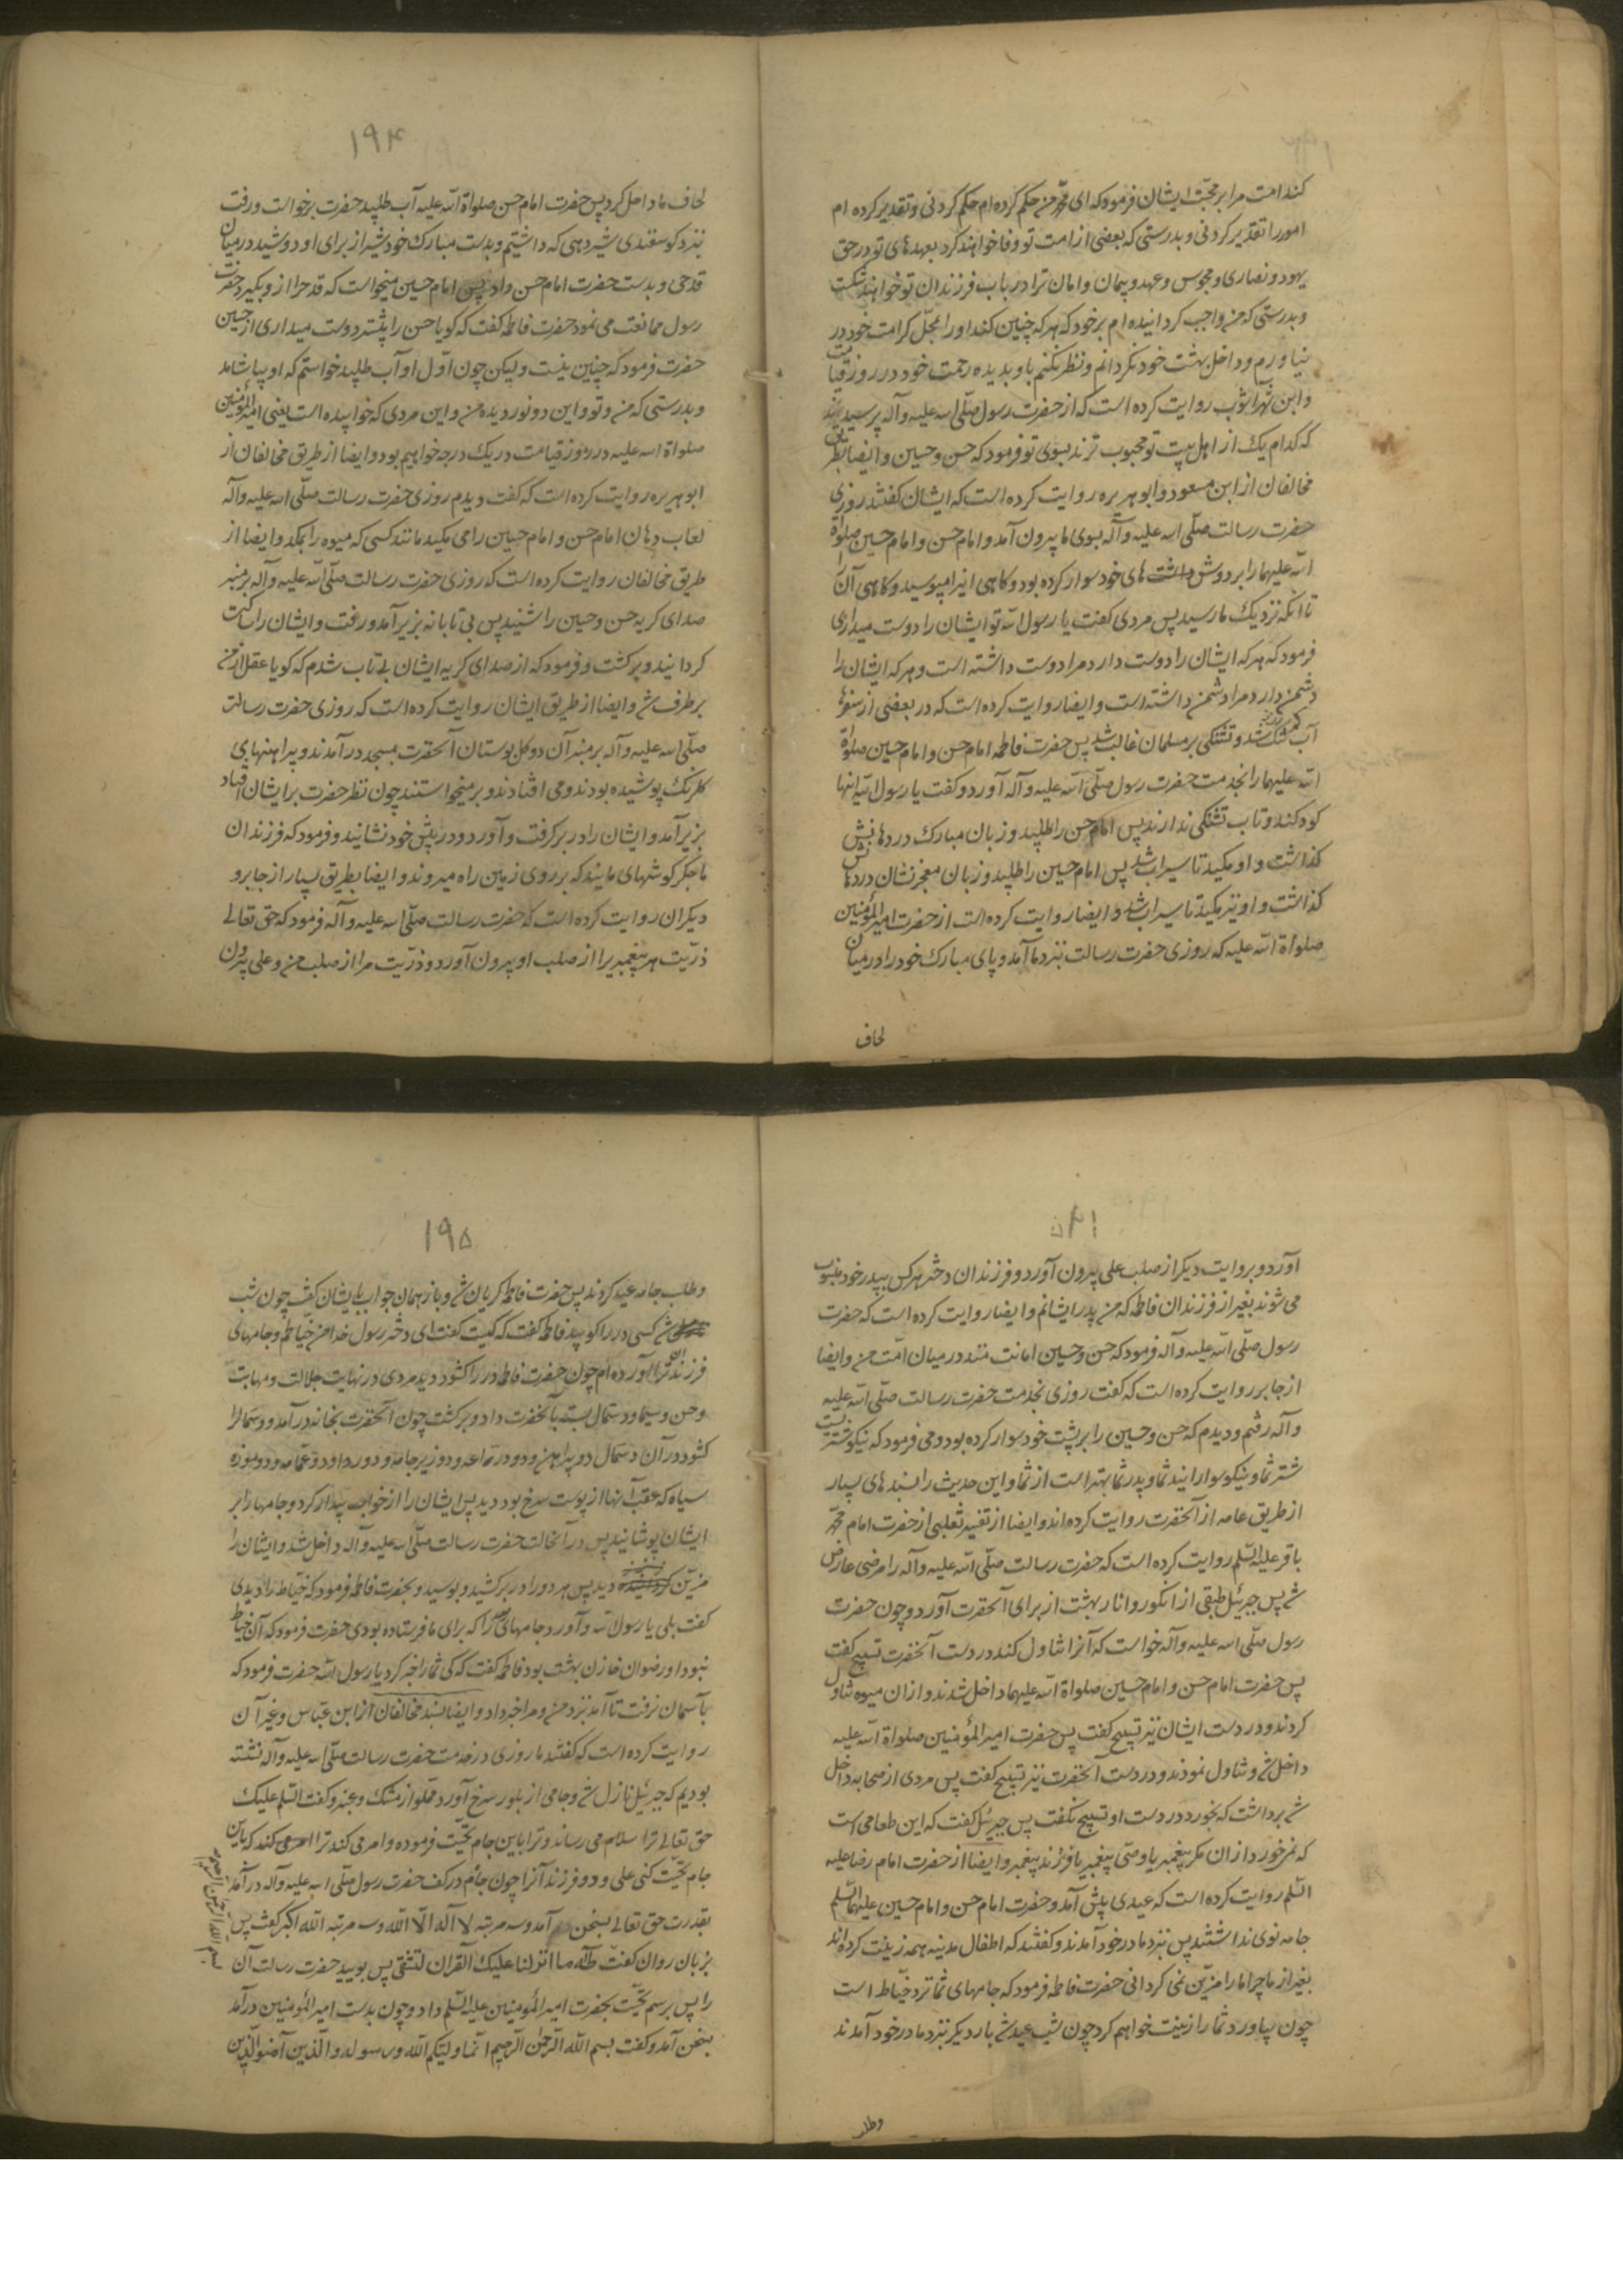 کند امت مرا بر محبت ایشان فرمود که ای محمد من حکم کرده‌ام حکم کردنی و تقدیر کرده ام
امور را تقدیر کردنی و بدرستی که بعضی از امت تو وفا خواهند کرد بعهدهای تو در حق
یهود و نصاری و مجوس و عهد و پیمان و امان ترا در باب فرزندان تو خواهند شکست
و بدرستی که من واجب گردانیده‌ام بر خود که هر که چنین کند او را بمحل کرامت خود در
نیاورم و داخل بهشت خود نگردانم و نظر نکنم باو بدیده رحمت خود در روز قیامت
و ابن شهراشوب روایت کرده است که از حضرت رسول صلّی اللّه علیه و آله پرسیدند
که کدام یک از اهل بیت تو محبوب ترند بسوی تو فرمود که حسن و حسین و ایضا بطریق
مخالفان از ابن مسعود و ابو هریره روایت کرده است که ایشان گفتند روزی
حضرت رسالت صلّی اللّه علیه و آله بسوی ما بیرون آمد و امام حسن و امام حسین صلواة
اللّه علیهما را بر دوش های خود سوار کرده بود و گاهی اینرا میبوسید و گاهی آن را
تا آنکه نزدیک ما رسید پس مردی گفت یا رسول اللّه تو ایشان را دوست میداری
فرمود که هر که ایشان را دوست دارد مرا دوست داشته است و هر که ایشان را
دشمن دارد مرا دشمن داشته است و ایضا روایت کرده است که در بعضی از سفرها
آب شد و تشنگی بر مسلمان غالب شد پس حضرت فاطمه امام حسن و امام حسین صلواة
اللّه علیهما را بخدمت حضرت رسول صلّی اللّه علیه و آله آورد و گفت یا رسول اللّه اینها
کودکند و تاب تشنگی ندارند پس امام حسن را طلبید و زبان مبارک در دهانش
گذاشت و او مکید تا سیراب شد پس امام حسین را طلبید و زبان معجز نشان در دهانش
گذاشت و او نیز مکید تا سیراب شد و ایضا روایت کرده است از حضرت امیر المؤمنین
صلواة اللّه علیه که روزی حضرت رسالت بنزد ما آمد و پای مبارک خود را در میان
لحاف
۱۹۴
لحاف ما داخل کرد پس حضرت امام حسن صلواة اللّه علیه آب طلبید حضرت برخواست و رفت
بنزد گوسفندی شیر دهی که داشتیم و بدست مبارک خود شیر از برای او دوشید در میان
قدحی و بدست حضرت امام حسن داد پس امام حسین میخواست که قدح را از او بگیرد حضرت
رسول ممانعت می نمود حضرت فاطمه گفت که گویا حسن را بیشتر دوست میداری از حسین
حضرت فرمود که چنین نیست و لیکن چون اوّل او آب طلبید خواستم که او بیاشامد
و بدرستی که من و تو و این دو نور دیده من و این مردی که خوابیده است یعنی امیر المؤمنین
صلواة اللّه علیه در روز قیامت در یک درجه خواهیم بود و ایضا از طریق مخالفان از
ابو هریره روایت کرده است که گفت دیدم روزی حضرت رسالت صلّی اللّه علیه و آله
لعاب دهان امام حسن و امام حسین را می مکید مانند کسی که میوه را بمکد و ایضا از
طریق مخالفان روایت کرده است که روزی حضرت رسالت صلّی اللّه علیه و آله بر منبر
صدای گریه حسن و حسین را شنید پس بی تابانه بزیر آمد و رفت و ایشان را ساکت
گردانید و برگشت و فرمود که از صدای گریه ایشان بی تاب شدم که گویا عقل از من
بر طرف شد و ایضا از طریق ایشان روایت کرده است که روزی حضرت رسالت
صلّی اللّه علیه و آله بر منبر آن دو گل بوستان آنحضرت بمسجد در آمدند و پیراهنهای
گلرنگ پوشیده بودند و می افتادند و بر میخواستند چون نظر حضرت بر ایشان افتاد
بزیر آمد و ایشان را در بر گرفت و آورد و در پیش خود نشانید و فرمود که فرزندان
ما جگر گوشهای مایند که بر روی زمین راه میروند و ایضا بطریق بسیار از جابر و
دیگران روایت کرده است که حضرت رسالت صلّی اللّه علیه و آله فرمود که حق تعالی
ذرّیت هر پیغمبر را از صلب او بیرون آورد و ذرّیت مرا از صلب من و علی بیرون
آورد و بروایت دیگر از صلب علی بیرون آورد و فرزندان دختر هر کس بپدر خود منسوب
می شوند بغیر از فرزندان فاطمه که من پدر ایشانم و ایضا روایت کرده است که حضرت
رسول صلّی اللّه علیه و آله فرمود که حسن و حسین امانت منند در میان امّت من و ایضا
از جابر روایت کرده است که گفت روزی بخدمت حضرت رسالت صلّی اللّه علیه
و آله رفتم و دیدم که حسن و حسین را بر پشت خود سوار کرده بود و می فرمود که نیکو شتریست
شتر شما و نیکو سوارانید شما و پدر شما بهتر است از شما و این حدیث را بسندهای بسیار
از طریق عامه از آنحضرت روایت کرده‌اند و ایضا از تفسیر ثعلبی از حضرت امام محمّد
باقر علیه السّلم روایت کرده است که حضرت رسالت صلّی اللّه علیه و آله را مرضی عارض
شد پس جبرئیل طبقی از انگور و انار بهشت از برای آنحضرت آورد و چون حضرت
رسول صلّی اللّه علیه و آله خواست که آنرا تناول کند در دست آنحضرت تسبیح گفت
پس حضرت امام حسن و امام حسین صلواة اللّه علیهما داخل شدند و از ان میوه تناول
کردند و در دست ایشان نیز تسبیح گفت پس حضرت امیر المؤمنین صلواة اللّه علیه
داخل شد و تناول نمودند و در دست آنحضرت نیز تسبیح گفت پس مردی از صحابه داخل
شد برداشت که بخورد در دست او تسبیح نگفت پس جبرئیل گفت که این طعامی است
که نمیخورد از ان مگر پیغمبر یا وصّی پیغمبر یا فرزند پیغمبر و ایضا از حضرت امام رضا علیه
السّلم روایت کرده است که عیدی پیش آمد و حضرت امام حسن و امام حسین علیهما السّلم
جامه نوی نداشتند پس بنزد مادر خود آمدند و گفتند که اطفال مدینه همه زینت کرده‌اند
بغیر از ما چرا ما را مزیّن نمی گردانی حضرت فاطمه فرمود که جامهای شما نزد خیّاط است
چون بیاورد شما را زینت خواهم کرد چون شب عید شد بار دیگر بنزد مادر خود آمدند
وطلب
۱۹۵
و طلب جامه عید کردند پس حضرت فاطمه گریان شد و باز همان جواب بایشان گفت چون شب
شد کسی در را کوبید فاطمه گفت که کیست گفت ای دختر رسول خدا من خیّاطم و جامهای
فرزندان ترا آورده‌ام چون حضرت فاطمه در را گشود دید مردی در نهایت جلالت و مهابت
و حسن و سیما و دستمال بسته بآنحضرت داد و برگشت چون آنحضرت بخانه در آمد و دستمال را
گشود در آن دستمال دو پیراهن و دو درّاعه و دو زیر جامه و دو رداء و دو عمّامه و دو موزه
سیاه که عقب آنها از پوست سرخ بود دید پس ایشان را از خواب بیدار کرد و جامها را بر
ایشان پوشانید پس در آنحالت حضرت رسالت صلّی اللّه علیه و آله داخل شد و ایشان را
مزیّن دید پس هر دو را در بر کشید و بوسید و بحضرت فاطمه فرمود که خیّاط را دیدی
گفت بلی یا رسول اللّه و آورد جامهائی را که برای ما فرستاده بودی حضرت فرمود که آن خیّاط
نبود او رضوان خازن بهشت بود فاطمه گفت که کی شما را خبر کرد یا رسول اللّه حضرت فرمود که
بآسمان نرفت تا آمد بنزد من و مرا خبر داد و ایضا بسند مخالفان از ابن عبّاس و غیر آن
روایت کرده است که گفتند ما روزی در خدمت حضرت رسالت صلّی اللّه علیه و آله نشسته
بودیم که جبرئیل نازل شد و جامی از بلور سرخ آورد مملوّ از مشک و عنبر و گفت السّلم علیک
حق تعالی ترا سلام می رساند و ترا باین جام تحیّت فرموده و امر می کند ترا که باین
جام تحیّت کنی علی و دو فرزند آنرا چون جام در کف حضرت رسول صلّی اللّه علیه و آله در آمد
بقدرت حق تعالی بسخن آمد و سه مرتبه لا آله الّا اللّه و سه مرتبه اللّه اکبر گفت پس
بزبان روان گفت طٓه ما انزلنا علیک القرآن لتشقی پس بویید حضرت رسالت آن
را پس برسم تحیّت بحضرت امیر المؤمنین علیه السّلم داد و چون بدست امیر المؤمنین در آمد
بسخن آمد و گفت بسم اللّه الرّحمن الرّحیم انّما ولیّکم اللّه و رسوله و الّذین آمنوا الّذین
بسم الله الرحمن الرحیم